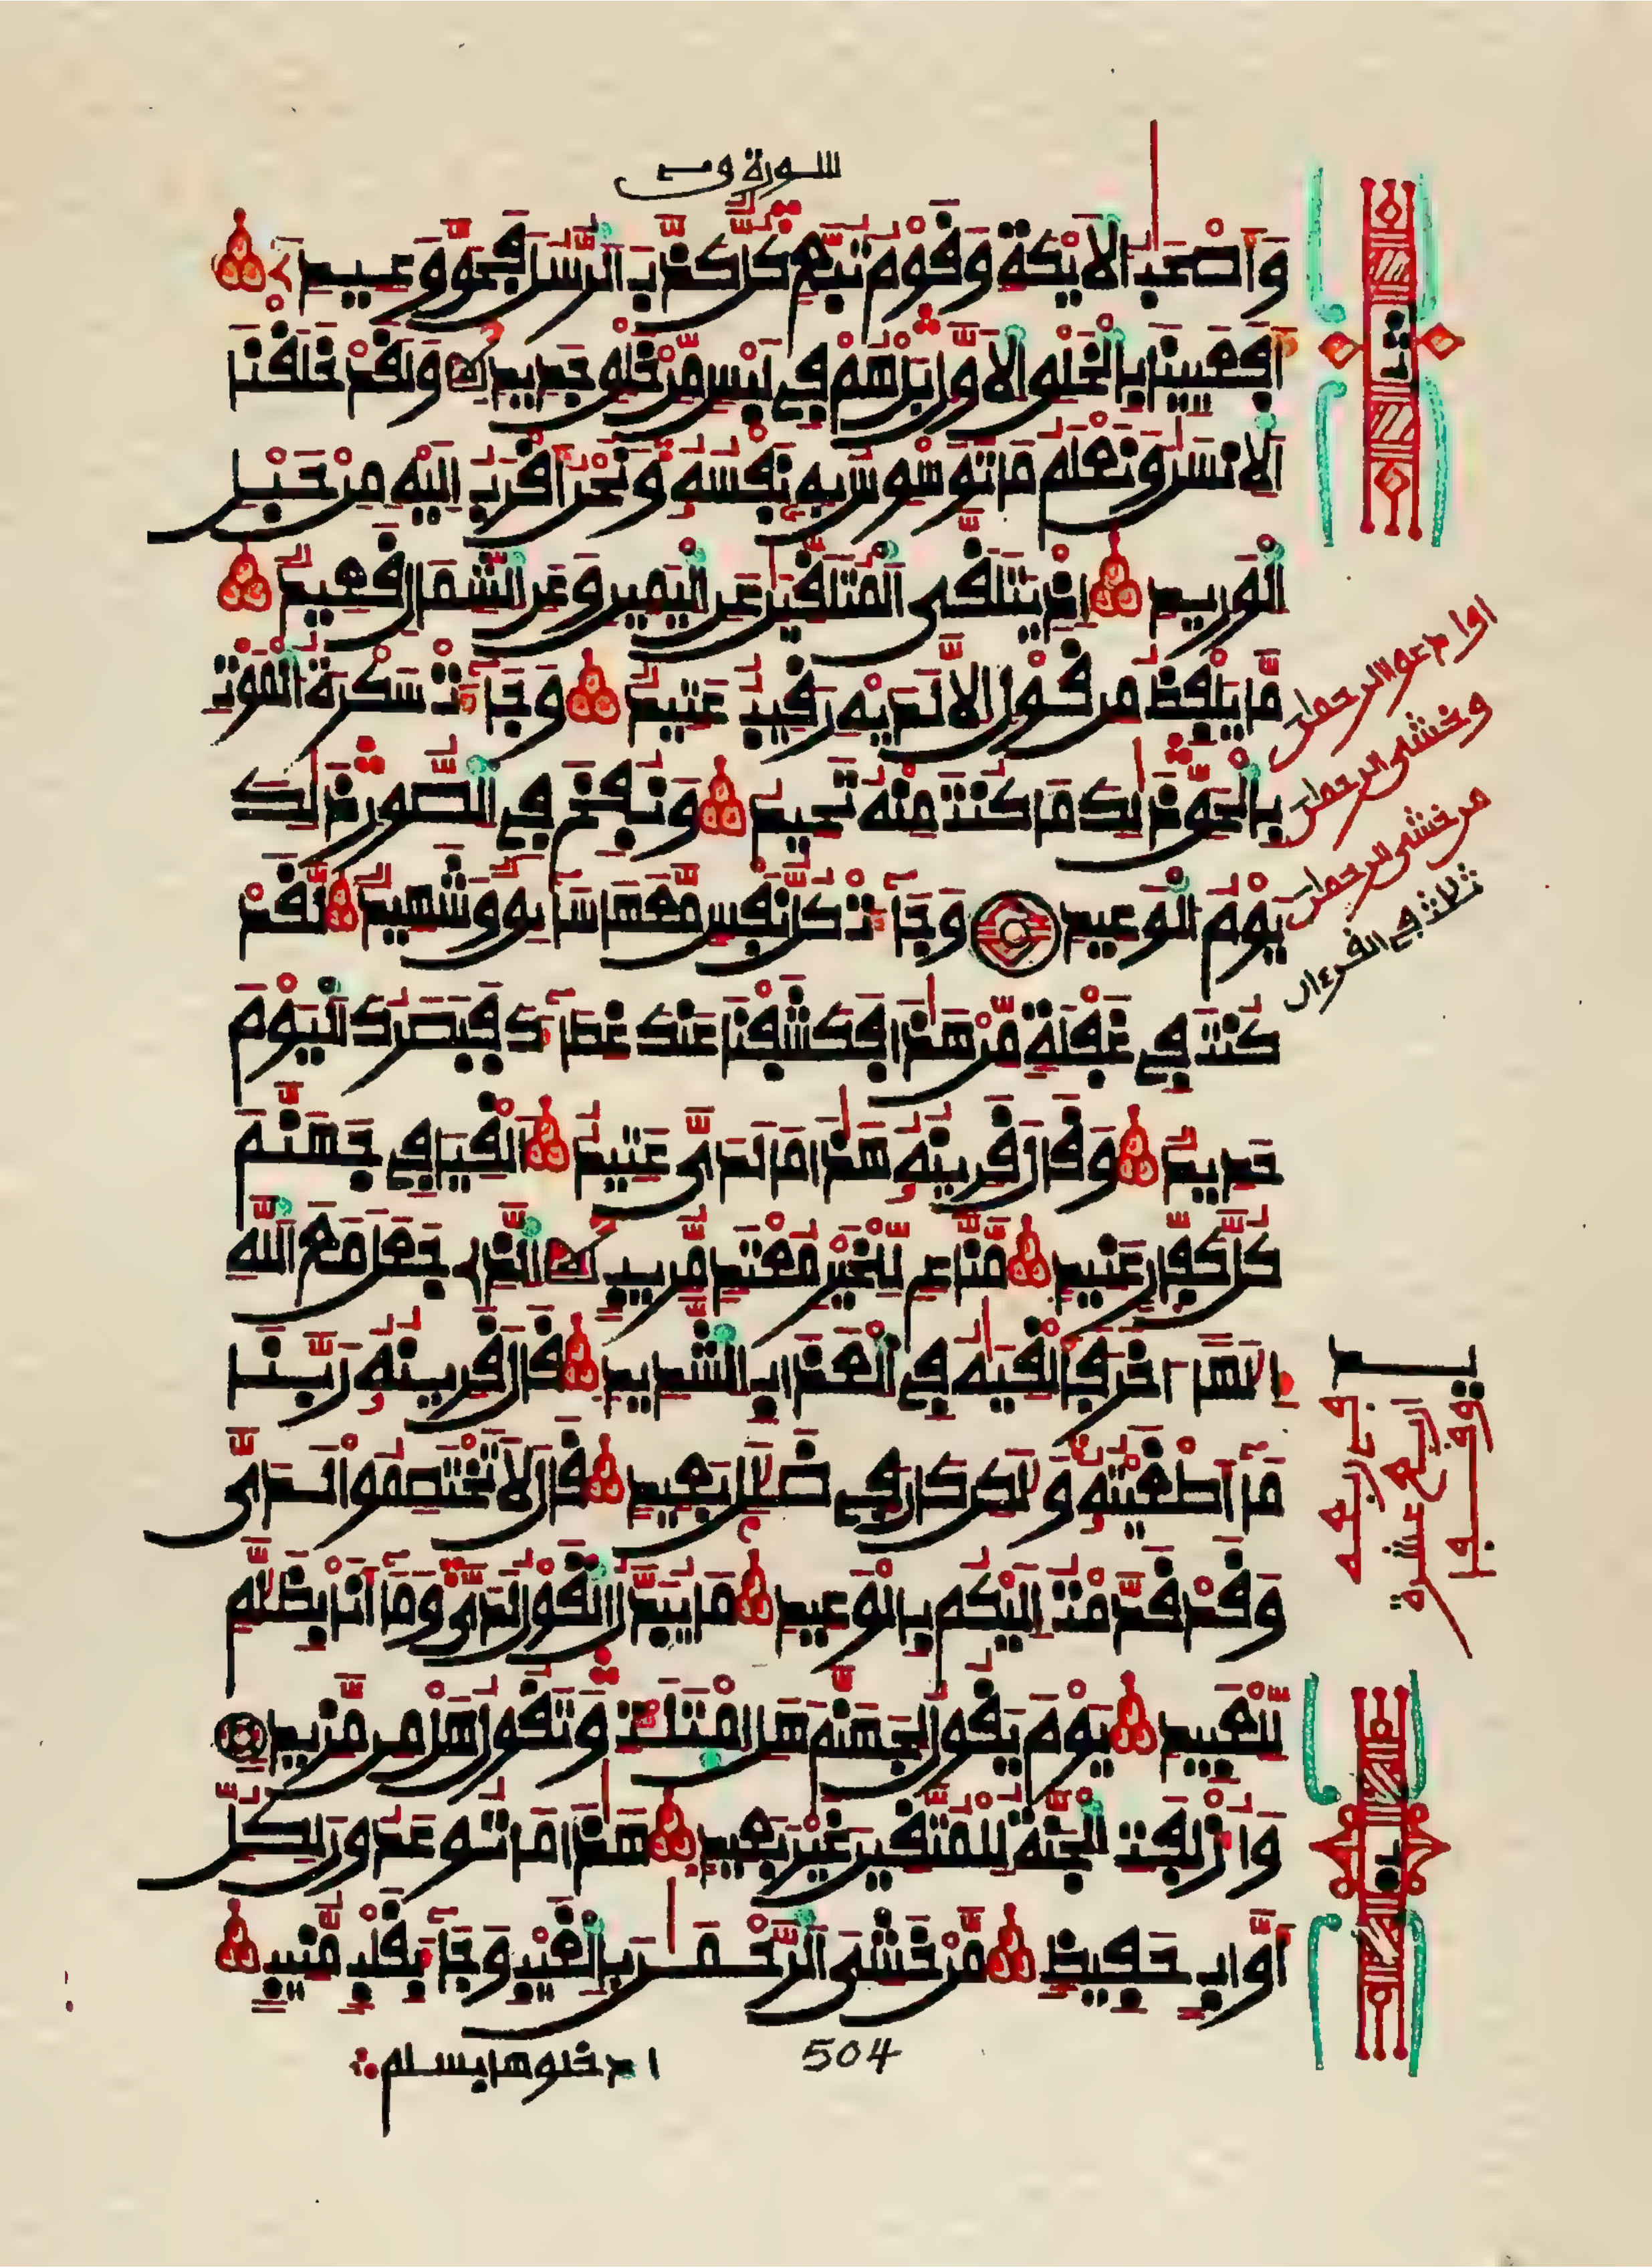 سورة ق
وَأَصْحَٰبُ الَايْكَةِ وَقَوْمُ تُبَّعٍ كُلٌّ كَذَّبَ الرُّسُلَ فَحَقَّ وَعِيدِ
أَفَعَيِينَا بِالْخَلْقِ الَاوَّلِ بَلْ هُمْ فِي لَبْسٍ مِّنْ خَلْقٍ جَدِيدٍ وَلَقَدْ خَلَقْنَا
اَلِانسَٰنَ وَنَعْلَمُ مَا تُوَسْوِسُ بِهِ نَفْسُهُ وَنَحْنُ أَقْرَبُ إِلَيْهِ مِنْ حَبْلِ
الْوَرِيدِ إِذْ يَتَلَقَّى الْمُتَلَقِّيَٰنِ عَنِ الْيَمِينِ وَعَنِ الشِّمَالِ قَعِيدٌ
مَّا يَلْفِظُ مِن قَوْلٍ الَّا لَدَيْهِ رَقِيبٌ عَتِيدٌ وَجَاءَتْ سَكْرَةُ الْمَوْتِ
بِالْحَقِّ ذَٰلِكَ مَا كُنتَ مِنْهُ تَحِيدُ وَنُفِخَ فِي الصُّورِ ذَٰلِكَ
يَوْمُ الْوَعِيدِ وَجَاءَتْ كُلُّ نَفْسٍ مَّعَهَا سَائِقٌ وَشَهِيدٌ لَّقَدْ
كُنتَ فِي غَفْلَةٍ مِّنْ هَٰذَا فَكَشَفْنَا عَنكَ غِطَاءَكَ فَبَصَرُكَ الْيَوْمَ
حَدِيدٌ وَقَالَ قَرِينُهُ هَٰذَا مَا لَدَيَّ عَتِيدٌ اَلْقِيَا فِي جَهَنَّمَ
كُلَّ كَفَّارٍ عَنِيدٍ مَّنَّاعٍ لِّلْخَيْرِ مُعْتَدٍ مُّرِيبٍ الذِي جَعَلَ مَعَ اللَّهِ
إِلَٰهاً اخَرَ فَأَلْقِيَٰهُ فِي الْعَذَابِ الشَّدِيدِ قَالَ قَرِينُهُ رَبَّنَا
مَا أَطْغَيْتُهُ وَلَٰكِن كَانَ فِي ضَلَٰلٍ بَعِيدٍ قَالَ لَا تَخْتَصِمُوا لَدَيَّ
وَقَدْ قَدَّمْتُ إِلَيْكُم بِالْوَعِيدِ مَا يُبَدَّلُ الْقَوْلُ لَدَيَّ وَمَا أَنَا بِظَلَّٰمٍ
لِّلْعَبِيدِ يَوْمَ يَقُولُ لِجَهَنَّمَ هَلِ امْتَلَأْتِ وَتَقُولُ هَلْ مِن مَّزِيدٍ
وَأُزْلِفَتِ الْجَنَّةُ لِلْمُتَّقِينَ غَيْرَ بَعِيدٍ هَٰذَا مَا تُوعَدُونَ لِكُلِّ
أَوَّابٍ حَفِيظٍ مَّنْ خَشِيَ الرَّحْمَٰنَ بِالْغَيْبِ وَجَاءَ بِقَلْبٍ مُّنِيبٍ
504
ادخلوها بسلم
ثمن
وخشى الرحمان
من خشى الرحمان
ثلاث في القرءان